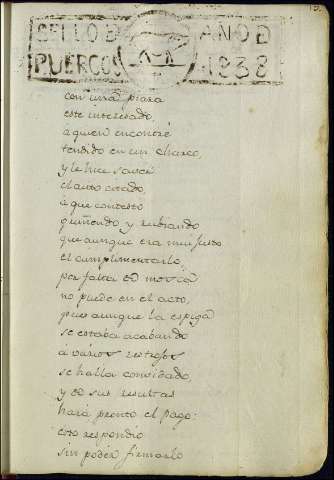 13.
SELLO D AÑO D
PUERCOS 1838
con una piara
este interesado,
á quien encontré
tendido en un charco,
y le hice saver
el auto citado,
á que contestó
gruñendo y rabiando
que aunque era muy justo
el cumplimentarlo
por falta de
no puede en el acto,
pues aunque la espiga
se estaba acabando
á varios restrojos
se halla convidado,
y de sus resultas
hará pronto el pago:
esto respondió
sin poder firmarlo